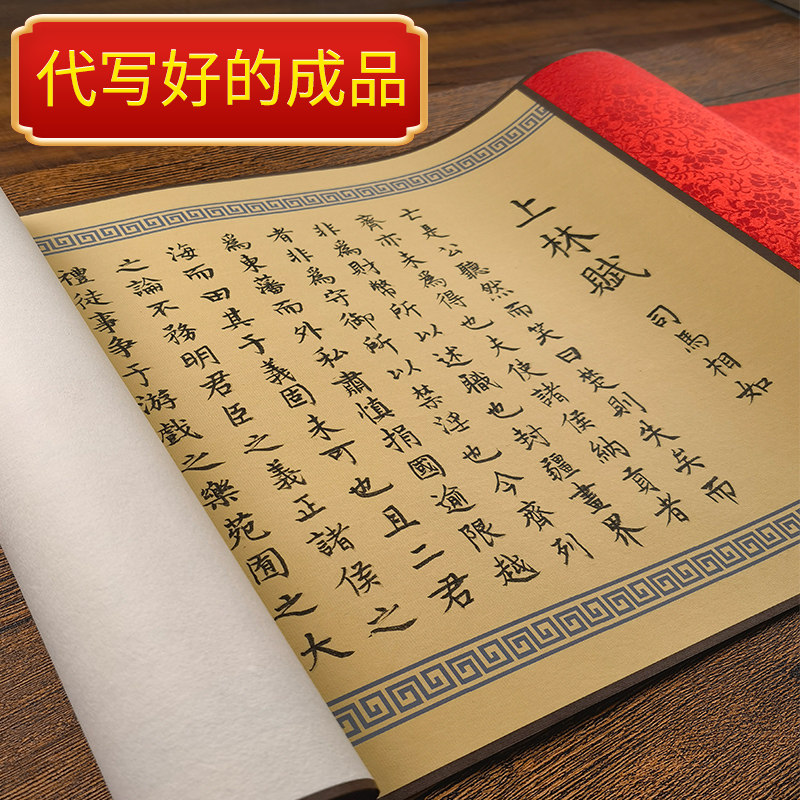 代写好的成品
上林賦
司馬相如
亡是公聽然而笑曰楚則失矣而
齊亦未為得也夫使諸侯納貢者
非為財幣所以述職也封疆畫界
者非為守御所以禁淫也今齊列
為東藩而外私肅慎捐國逾限越
海而田其于義固未可也且二君
之論不務明君臣之義正諸侯之
禮徒事爭于游戲之樂苑囿之大